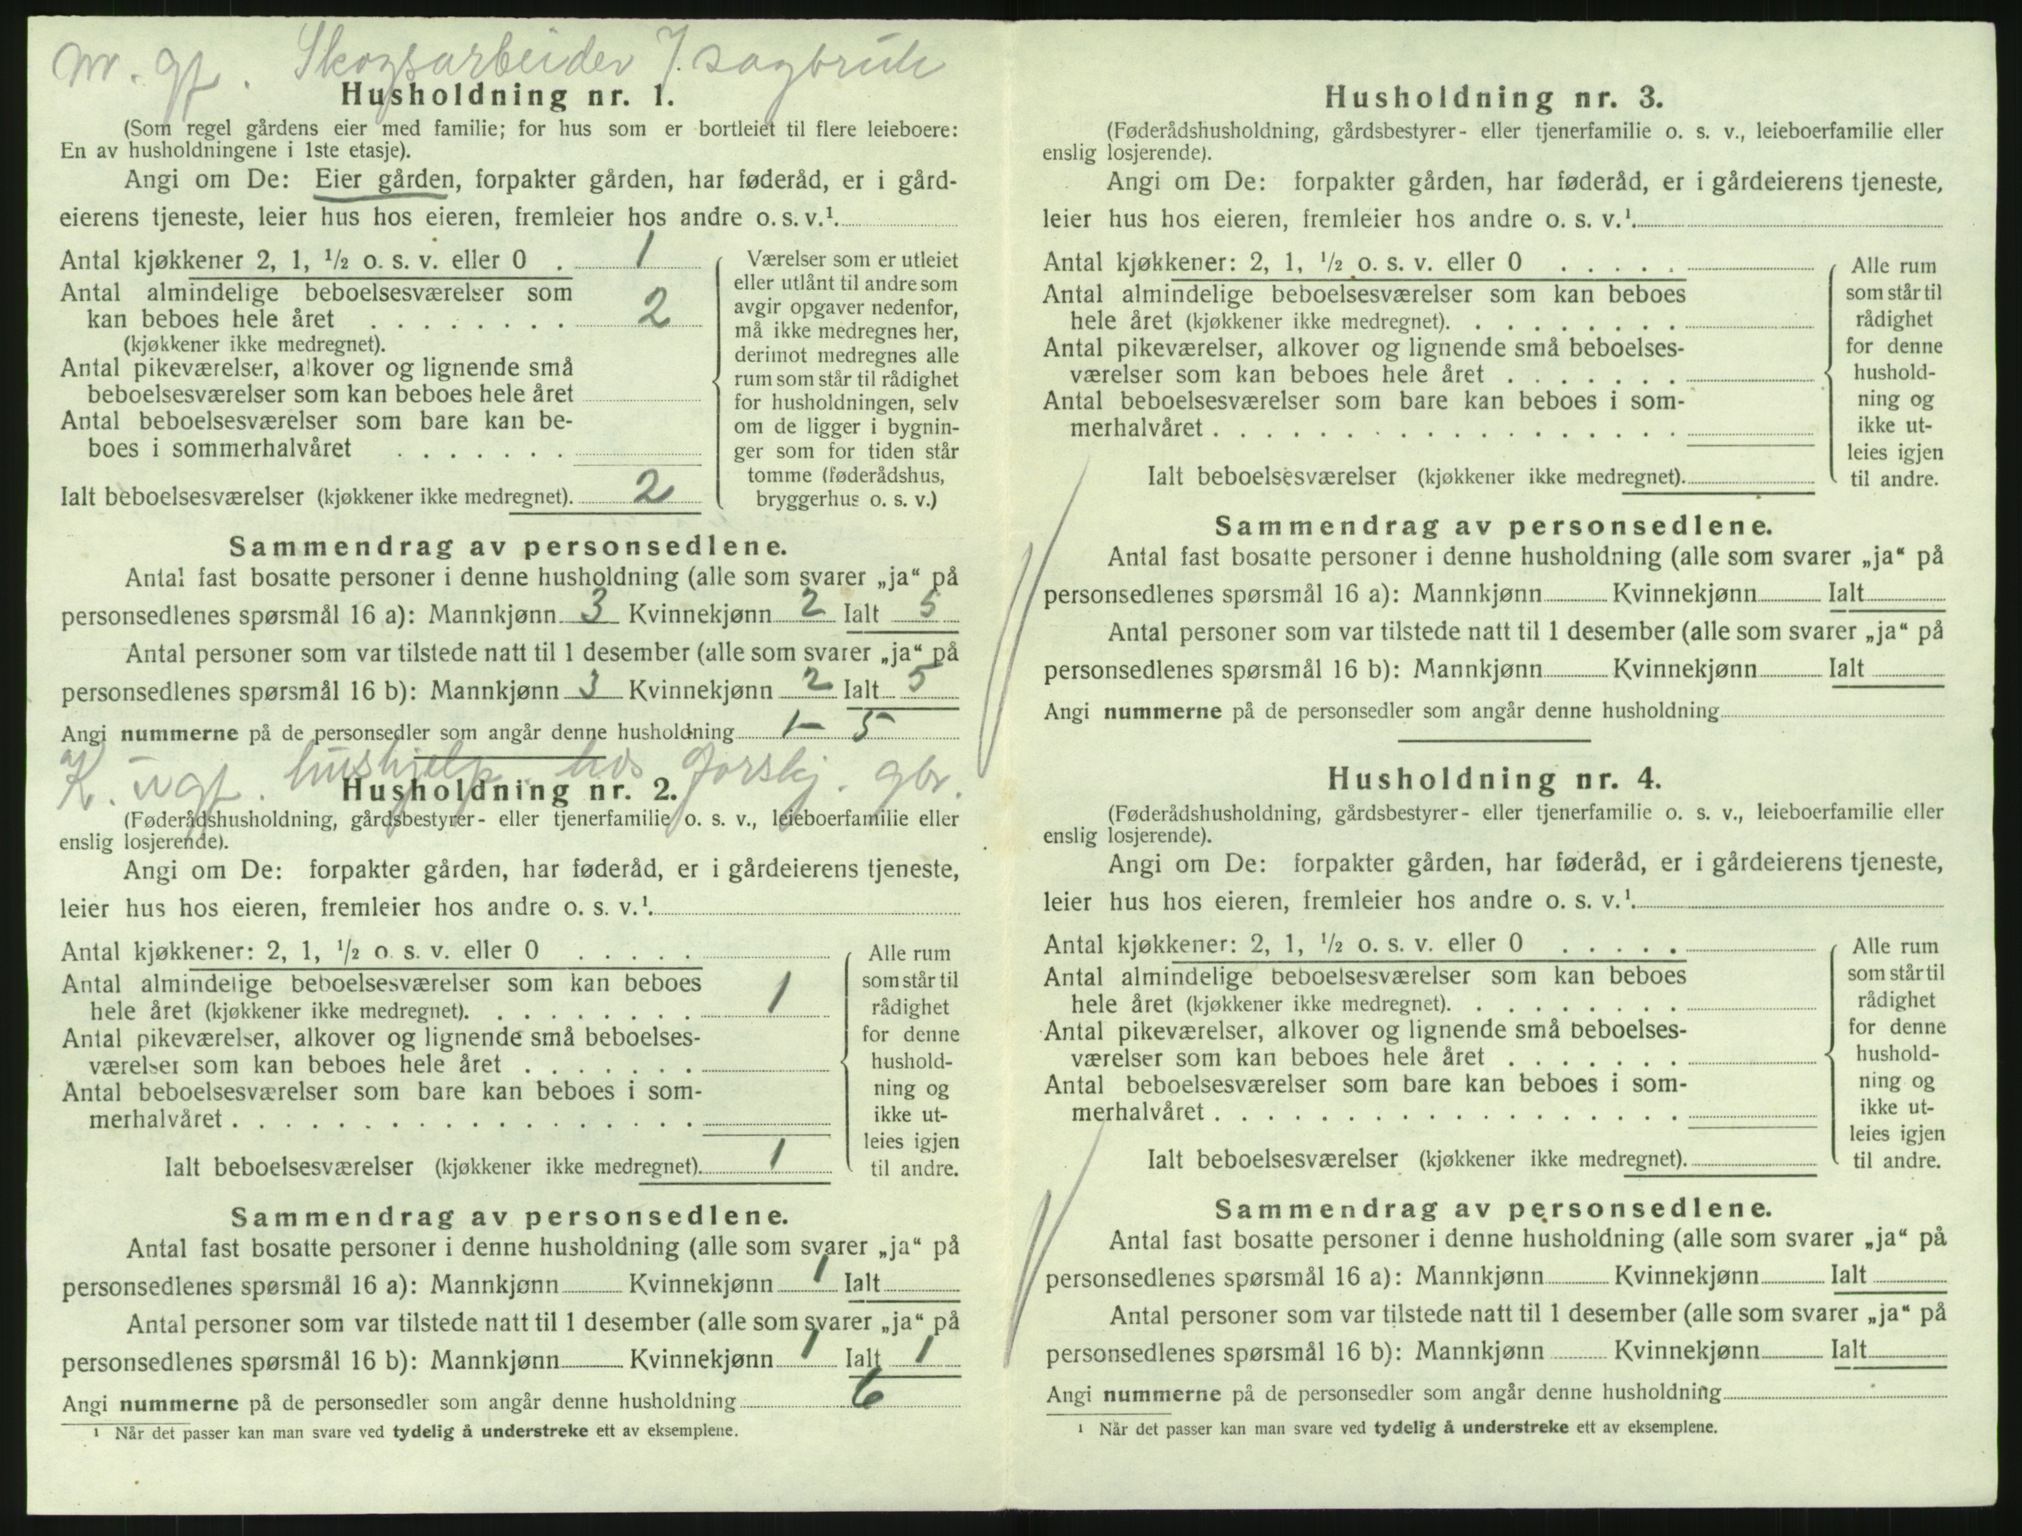 m. gf. Skogsarbeider 7. sagbruk
Husholdning nr. 1.
(Som regel gårdens eier med familie; for hus som er bortleiet til flere leieboere:
En av husholdningene i 1ste etasje).
Angi om De: Eier gården, forpakter gården, har føderåd, er i gård-
eierens tjeneste, leier hus hos eieren, fremleier hos andre o. s. v.¹.
Antal kjøkkener 2, 1, ½ o. s. v. eller 0 . 1
Antal almindelige beboelsesværelser som
kan beboes hele året . . . . . . . . 2
(kjøkkener ikke medregnet).
Antal pikeværelser, alkover og lignende små
beboelsesværelser som kan beboes hele året
Antal beboelsesværelser som bare kan be-
boes i sommerhalvåret . . . . . . .
Ialt beboelsesværelser (kjøkkener ikke medregnet). 2
Værelser som er utleiet
eller utlånt til andre som
avgir opgaver nedenfor,
må ikke medregnes her,
derimot medregnes alle
rum som står til rådighet
for husholdningen, selv
om de ligger i bygnin-
ger som for tiden står
tomme (føderådshus,
bryggerhus o. s. v.)
Sammendrag av personsedlene.
Antal fast bosatte personer i denne husholdning (alle som svarer „ja“ på
personsedlenes spørsmål 16 a): Mannkjønn 3 Kvinnekjønn 2 Ialt 5
Antal personer som var tilstede natt til 1 desember (alle som svarer „ja“ på
personsedlenes spørsmål 16 b): Mannkjønn 3 Kvinnekjønn 2 Ialt 5
Angi nummerne på de personsedler som angår denne husholdning 1 - 5
K. ugf. hushjelp. hos forskj. gbr.
Husholdning nr. 2.
(Føderådshusholdning, gårdsbestyrer- eller tjenerfamilie o. s. v., leieboerfamilie eller
enslig losjerende).
Angi om De: forpakter gården, har føderåd, er i gårdeierens tjeneste,
leier hus hos eieren, fremleier hos andre o. s. v.¹.
Antal kjøkkener: 2, 1, ½ o. s. v. eller 0 . . . . .
Antal almindelige beboelsesværelser som kan beboes
hele året (kjøkkener ikke medregnet). . . . . . . . . 1
Antal pikeværelser, alkover og lignende små beboelses-
værelser som kan beboes hele året . . . . . . .
Antal beboelsesværelser som bare kan beboes i som-
merhalvåret . . . . . . . . . . . . . . . . . .
Ialt beboelsesværelser (kjøkkener ikke medregnet). 1
Alle rum
som står til
rådighet
for denne
hushold-
ning og
ikke ut-
leies igjen
til andre.
Sammendrag av personsedlene.
Antal fast bosatte personer i denne husholdning (alle som svarer „ja“ på
personsedlenes spørsmål 16 a): Mannkjønn Kvinnekjønn 1 Ialt
Antal personer som var tilstede natt til 1 desember (alle som svarer „ja“ på
personsedlenes spørsmål 16 b): Mannkjønn Kvinnekjønn 1 Ialt 1
Angi nummerne på de personsedler som angår denne husholdning 6
¹ Når det passer kan man svare ved tydelig å understreke ett av eksemplene.
Husholdning nr. 3.
(Føderådshusholdning, gårdsbestyrer- eller tjenerfamilie o. s. v., leieboerfamilie eller
enslig losjerende).
Angi om De: forpakter gården, har føderåd, er i gårdeierens tjeneste,
leier hus hos eieren, fremleier hos andre o. s. v.¹.
Antal kjøkkener: 2, 1, ½ o. s. v. eller 0 . . . . .
Antal almindelige beboelsesværelser som kan beboes
hele året (kjøkkener ikke medregnet). . . . . . . . .
Antal pikeværelser, alkover og lignende små beboelses-
værelser som kan beboes hele året . . . . . . .
Antal beboelsesværelser som bare kan beboes i som-
merhalvåret . . . . . . . . . . . . . . . . . .
Ialt beboelsesværelser (kjøkkener ikke medregnet).
Alle rum
som står til
rådighet
for denne
hushold-
ning og
ikke ut-
leies igjen
til andre.
Sammendrag av personsedlene.
Antal fast bosatte personer i denne husholdning (alle som svarer „ja“ på
personsedlenes spørsmål 16 a): Mannkjønn Kvinnekjønn Ialt
Antal personer som var tilstede natt til 1 desember (alle som svarer „ja“ på
personsedlenes spørsmål 16 b): Mannkjønn Kvinnekjønn Ialt
Angi nummerne på de personsedler som angår denne husholdning
Husholdning nr. 4.
(Føderådshusholdning, gårdsbestyrer- eller tjenerfamilie o. s. v., leieboerfamilie eller
enslig losjerende).
Angi om De: forpakter gården, har føderåd, er i gårdeierens tjeneste,
leier hus hos eieren, fremleier hos andre o. s. v.¹.
Antal kjøkkener: 2, 1, ½ o. s. v. eller 0 . . . . .
Antal almindelige beboelsesværelser som kan beboes
hele året (kjøkkener ikke medregnet). . . . . . . . .
Antal pikeværelser, alkover og lignende små beboelses-
værelser som kan beboes hele året . . . . . . .
Antal beboelsesværelser som bare kan beboes i som-
merhalvåret . . . . . . . . . . . . . . . . . .
Ialt beboelsesværelser (kjøkkener ikke medregnet).
Alle rum
som står til
rådighet
for denne
hushold-
ning og
ikke ut-
leies igjen
til andre.
Sammendrag av personsedlene.
Antal fast bosatte personer i denne husholdning (alle som svarer „ja“ på
personsedlenes spørsmål 16 a): Mannkjønn Kvinnekjønn Ialt
Antal personer som var tilstede natt til 1 desember (alle som svarer „ja“ på
personsedlenes spørsmål 16 b): Mannkjønn Kvinnekjønn Ialt
Angi nummerne på de personsedler som angår denne husholdning
¹ Når det passer kan man svare ved tydelig å understreke ett av eksemplene.